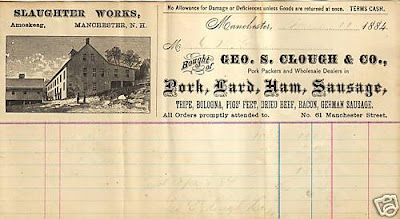 SLAUGHTER WORKS,
Amoskeag, MANCHESTER, N. H.
No Allowance for Damage or Deficiences unless Goods are returned at once. TERMS CASH.
Manchester, 1884
M
Bought of GEO. S. CLOUGH & CO.,
Pork Packers and Wholesale Dealers in
Pork, Lard, Ham, Sausage,
TRIPE, BOLOGNA, PIGS' FEET, DRIED BEEF, BACON, GERMAN SAUSAGE.
All Orders promptly attended to. No. 61 Manchester Street.